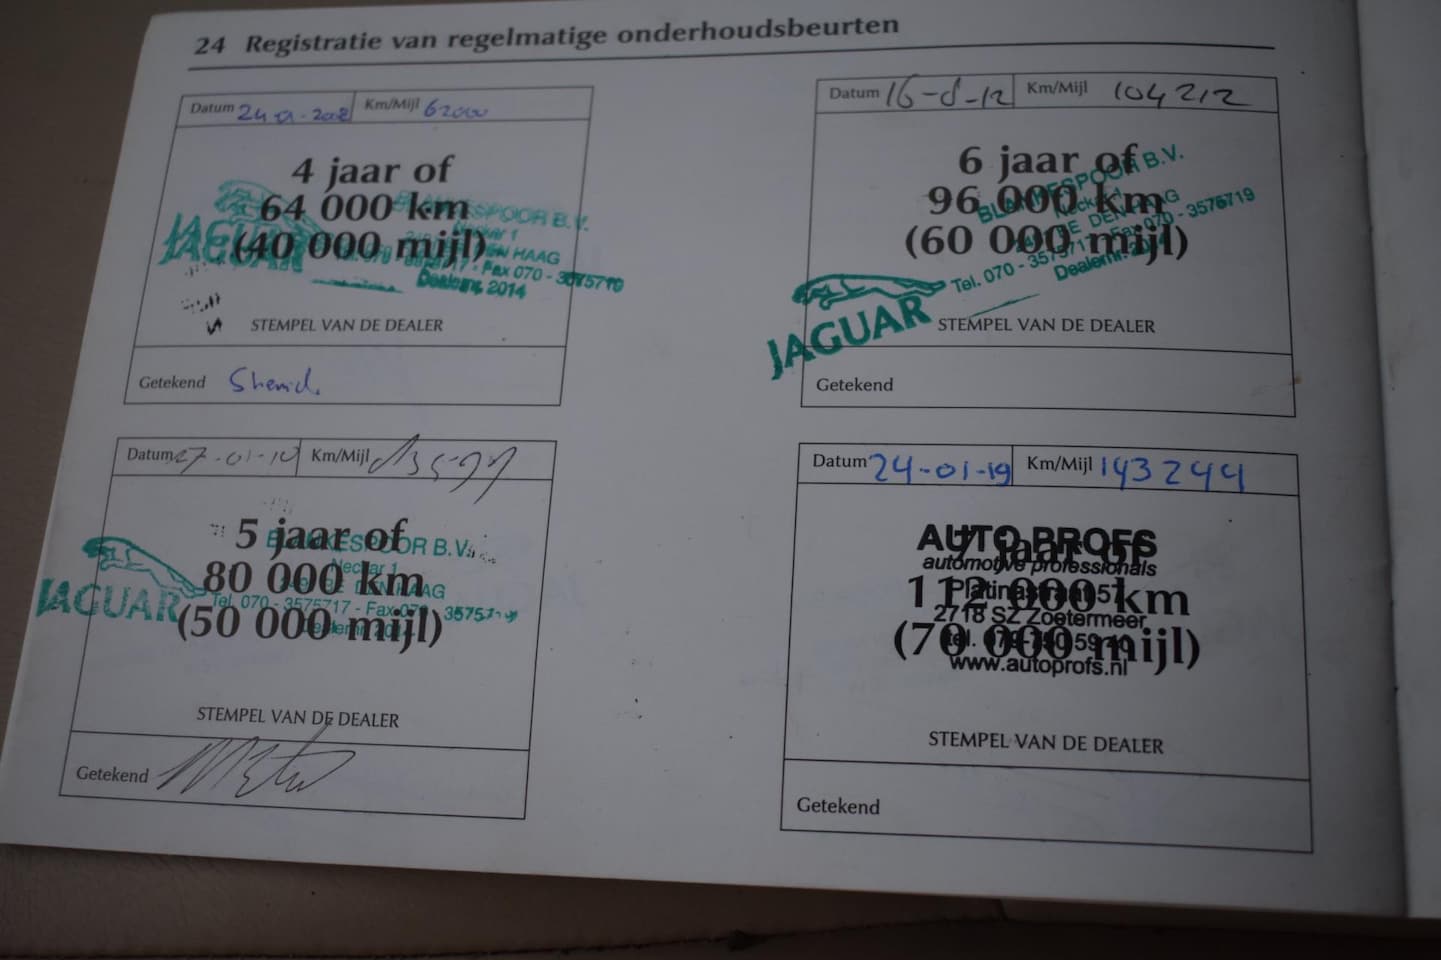 24 Registratie van regelmatige onderhoudsbeurten
Datum Km/Mijl 62000
4 jaar of
64 000 km
(40 000 mijl)
JAGUAR
BLANKESPOOR B.V.
Neckar 1
DEN HAAG
Fax 070 - 3575719
Dealernr. 2014
STEMPEL VAN DE DEALER
Getekend
Datum 27-01-10 Km/Mijl
5 jaar of
80 000 km
(50 000 mijl)
JAGUAR
BLANKESPOOR B.V.
Neckar 1
DEN HAAG
Tel. 070 - 3575717 - Fax 070 - 3575719
STEMPEL VAN DE DEALER
Getekend
Datum 16-8-12 Km/Mijl 104212
6 jaar of
96 000 km
(60 000 mijl)
JAGUAR
BLANKESPOOR B.V.
Neckar
DEN HAAG
Tel. 070 - 3575717 - Fax 070 - 3575719
Dealernr.
STEMPEL VAN DE DEALER
Getekend
Datum 24-01-19 Km/Mijl 143244
7 jaar of
112 000 km
(70 000 mijl)
AUTO PROFS
automotive professionals
Platinastraat 57
2718 SZ Zoetermeer
www.autoprofs.nl
STEMPEL VAN DE DEALER
Getekend